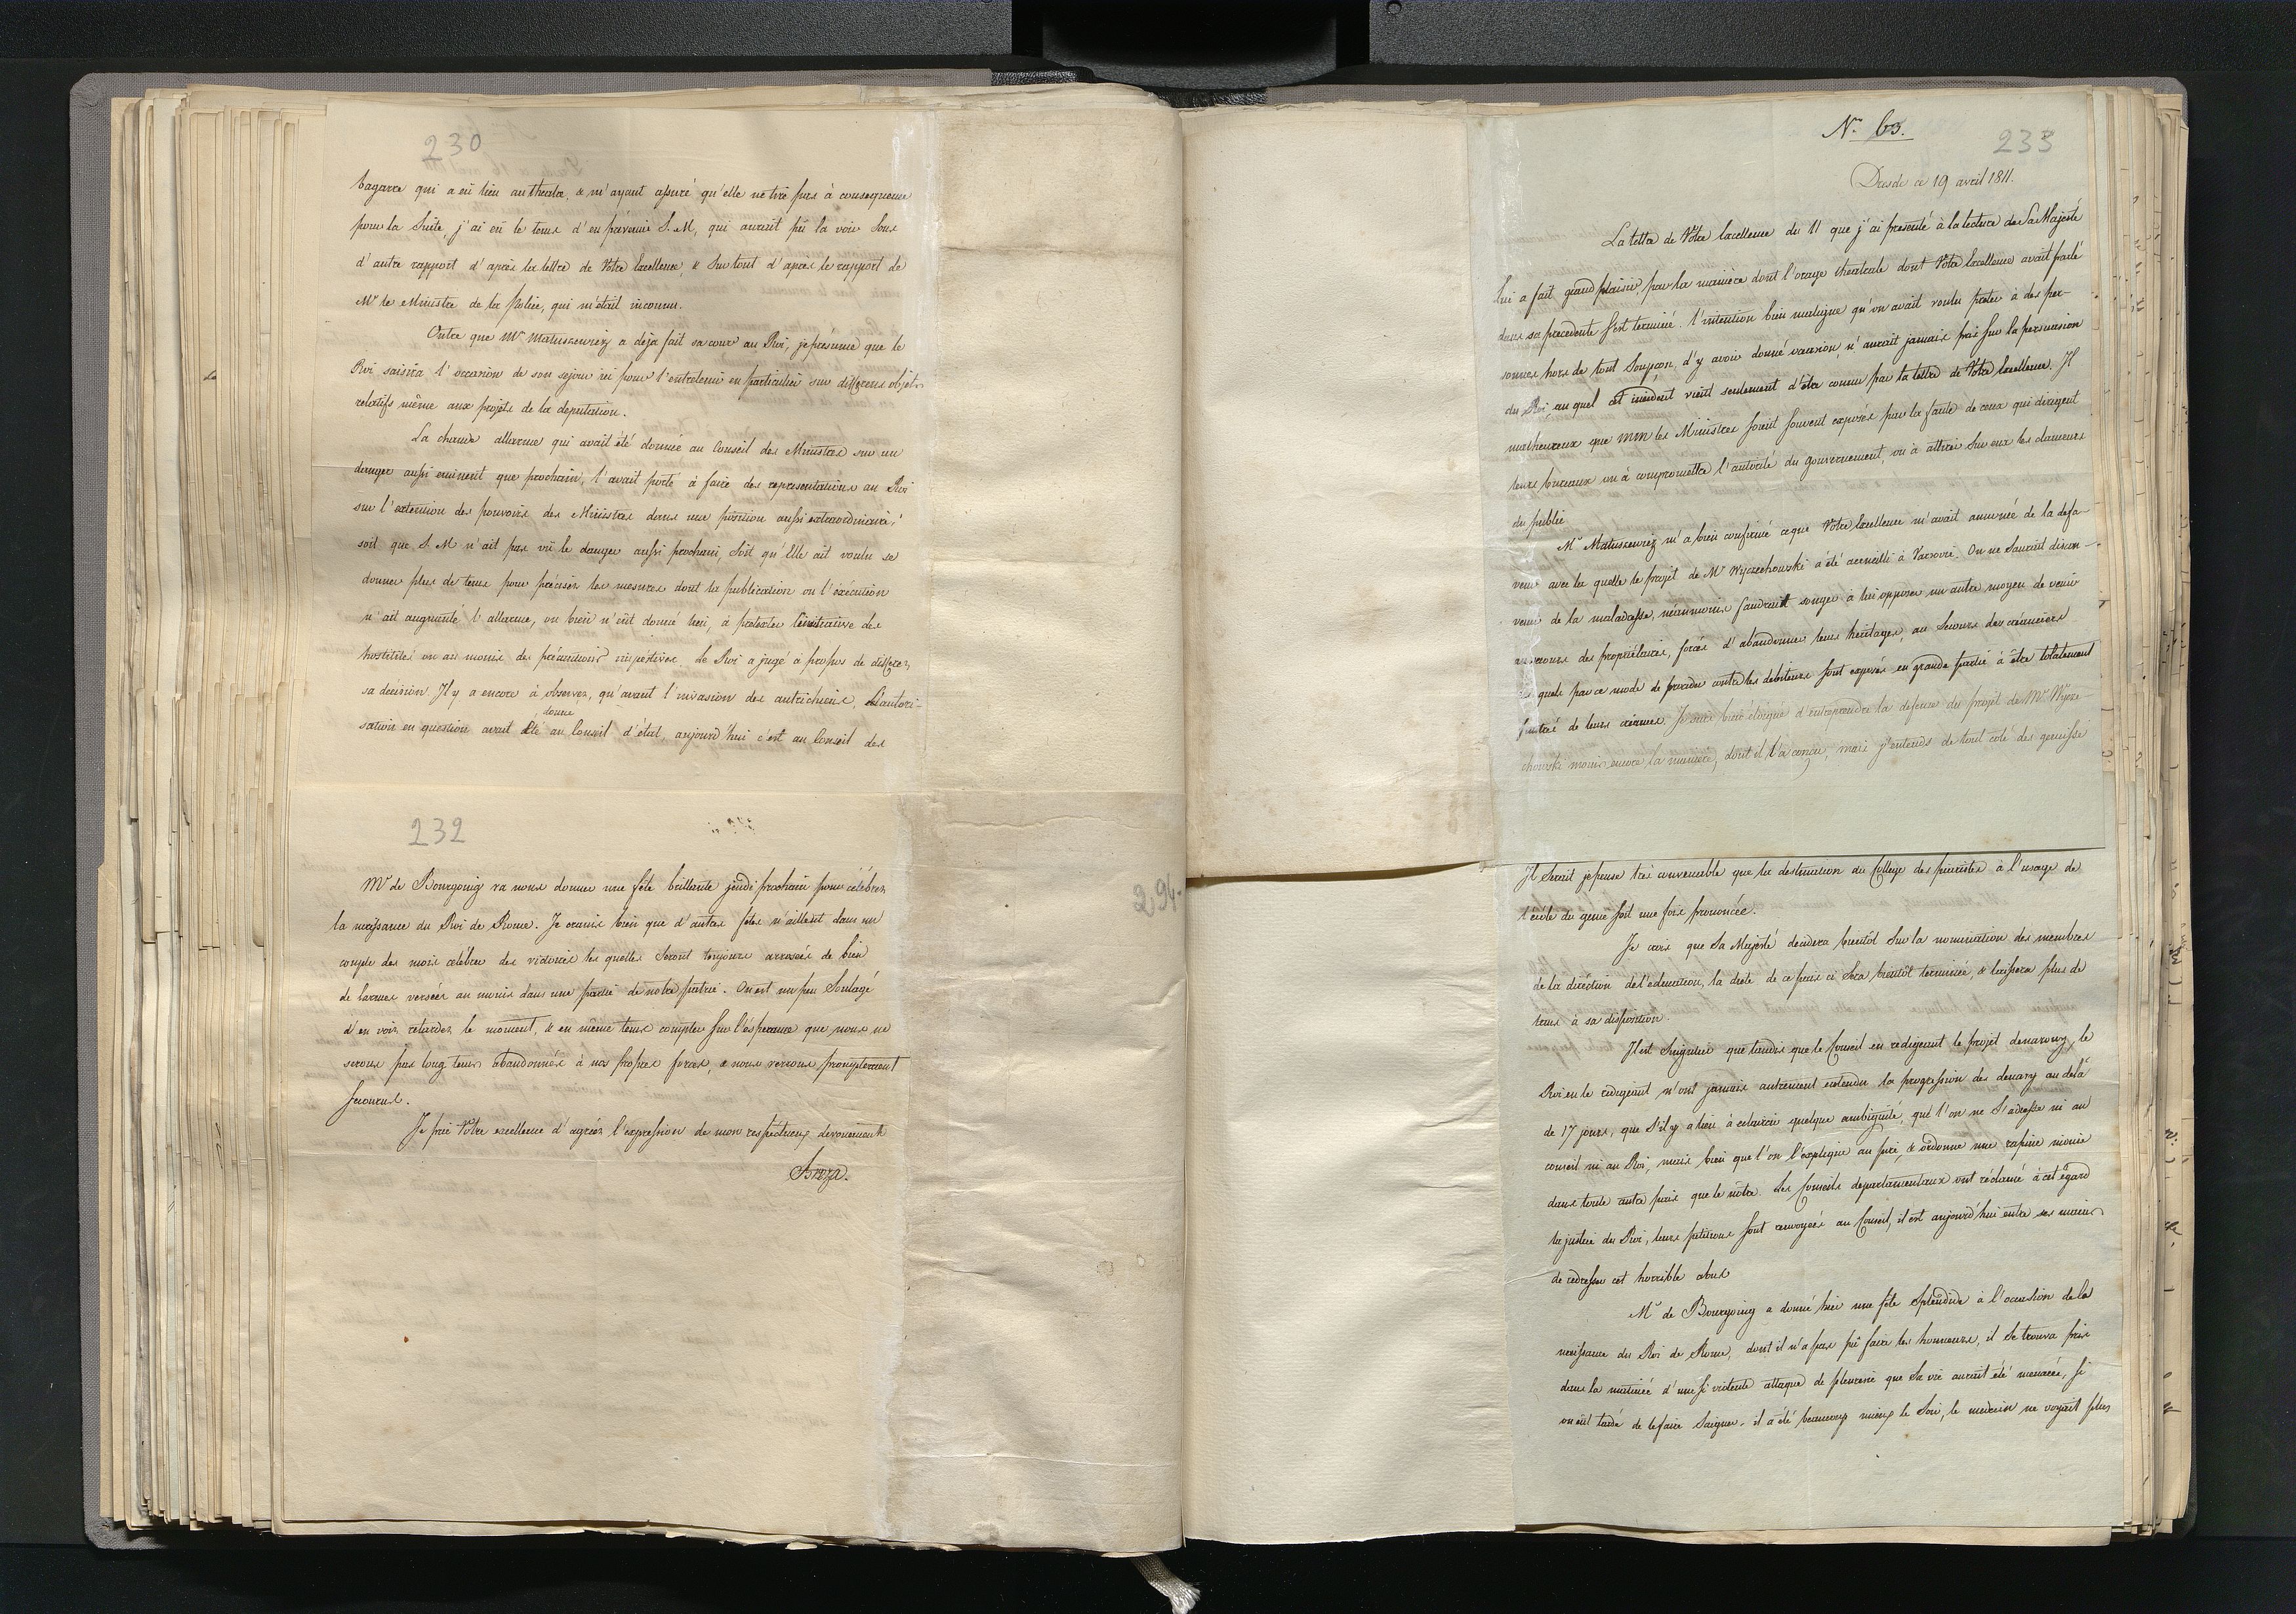 230
bagarre qui a eü lieu au theatre, & m'ayant assuré qu'elle ne tire pas à consequence
pour la Suite, j'ai eü le tems d'en prévenir S. M, qui aurait pü la voir Sous
d'autre rapport d'après la lettre de Votre Excellence, & Sur tout d'après le rapport de
Mr le Ministre de la Police, qui m'était inconnu.
Outre que Mr Matuszewicz a déja fait sa cour au Roi, je présume que le
Roi saisira l'occasion de son sejour ici pour l'entretenir en particulier sur differens objets
relatifs même aux projets de la deputation.
La chaude allarme qui avait été donnée au Conseil des Ministres sur un
danger aussi eminent que prochain, l'avait porté à faire des representations au Roi
sur l'extension des pouvoirs des Ministres dans une position aussi extraordinaire;
soit que S. M n'ait pas vü le danger aussi prochain, Soit qu'Elle ait voulu se
donner plus de tems pour préciser les mesures dont la publication ou l'exécution
n'ait augmenté l'allarme, ou bien n'eüt donné lieu, à prétexter l'initiative des
hostilités ou au moins des précautions le Roi a jugé à propos de differer
sa décision. Il y a encore à observer, qu'avant l'invasion des autrichiens, l'autori-
donné
sation en question avait été au Conseil d'état, aujourd'hui c'est au Conseil des
232
Mr de Bourgoing va nous donner une fête brillante jeudi prochain pour célébrer
la naissance du Roi de Rome. Je crains bien que d'autres fêtes n'aillent dans un
couple des mois célébrer des victoires les quelles Seront toujours arrosées de bien
de larmes versées au moins dans une partie de notre patrie. On est un peu Soulagé
d'en voir retarder le moment, & en même tems compter Sur l'ésperance que nous ne
serons pas long tems abandonnés à nos propres forces, & nous verrons promptement
secourus.
Je prie Votre excellence d'agréer l'expression de mon respectueux devouement
Breza.
294.
No. 63.
233
Dresde ce 19 avril 1811.
La lettre de Votre Excellence du 11 que j'ai presenté à la lecture de Sa Majesté
lui a fait grand plaisir, par la manière dont l'orage théatrale dont Votre Excellence avait parlé
dans sa precedente s'est terminé. l'intention bien maligne qu'on avait voulu preter à des per-
sonnes hors de tout Soupçon d'y avoir donné occasion, n'aurait jamais pris sur la persuasion
du Roi, au quel cet incident vient seulement d'être connu par la lettre de Votre Excellence. Il
malheureux que MM les Ministres soient souvent exposés par la faute de ceux qui dirigent
leurs bureaux ou à compromettre l'autorité du gouvernement, ou à attirer Sur eux les clameurs
du public
Mr Matuszewicz m'a bien confirmé ce que Votre Excellence m'avait annoncé de la defa-
veur avec la quelle le projet de Mr Wyczechowski a été accueilli à Varsovie. On ne Saurait discon-
venir de la maladresse, néanmoins faudrait songer à lui opposer un autre moyen de venir
au secours des propriétaires, forcés d'abandonner leurs heritages, au Secours des créanciers
les quels par ce mode de proceder contre les debiteurs sont exposés en grande partie à être totalement
frustré de leurs créances. Je suis bien éloigné d'entreprendre la defense du projet de Mr Wycze-
chowski moins encore la manière, dont il l'a conçu, mais j'entends de tout coté des
Il Serait je pense très convenable que la destination du College des piaristes à l'usage de
l'école du genie soit une fois prononcée.
Je crois que Sa Majesté decidera bientôt Sur la nomination des membres
de la diréction de l'education, la diete de ce païs ci Sera bientôt terminée, & laissera plus de
tems à sa disposition.
Il est Singulier que tandis que le Conseil en redigeant le projet le
Roi en le redigeant n'ont jamais autrement entendu la progression des au delà
de 17 jours, que s'il y a lieu à eclaircir quelque ambiguité, que l'on ne S'adresse ni au
conseil ni au Roi, mais bien que l'on l'explique au pire, & ordonne une rapine
dans toute autre païs que le nôtre. Les Conseils departamentaux ont réclamé à cet égard
la justice du Roi, leurs petitions sont renvoyées au Conseil, il est aujourd'hui entre ses mains
de redresser cet horrible abus
Mr de Bourgoing a donné hier une fête Splendide à l'occasion de la
naissance du Roi de Rome, dont il n'a pas pü faire les honneurs, il Se trouva pris
dans la matinée d'une si violente attaque de pleuresie que Sa vie aurait été menacée, Si
on eüt tardé de le faire Saigner. il a été beaucoup mieux le Soir, le medecin ne voyait plus